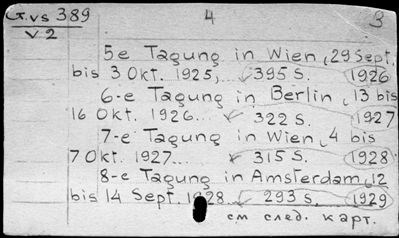 G.vs 389 4 3
V 2
5e Tagung in Wien, 29 Sept.
bis 3 Okt. 1925,... 395 S. 1926
6-e Tagung in Berlin, 13 bis
16 Okt. 1926... 322 S. 1927
7-e Tagung in Wien, 4 bis
7 Okt. 1927... 315 S. 1928
8-e Tagung in Amsterdam, 12
bis 14 Sept. 1928. 293 S. 1929
см след. карт.